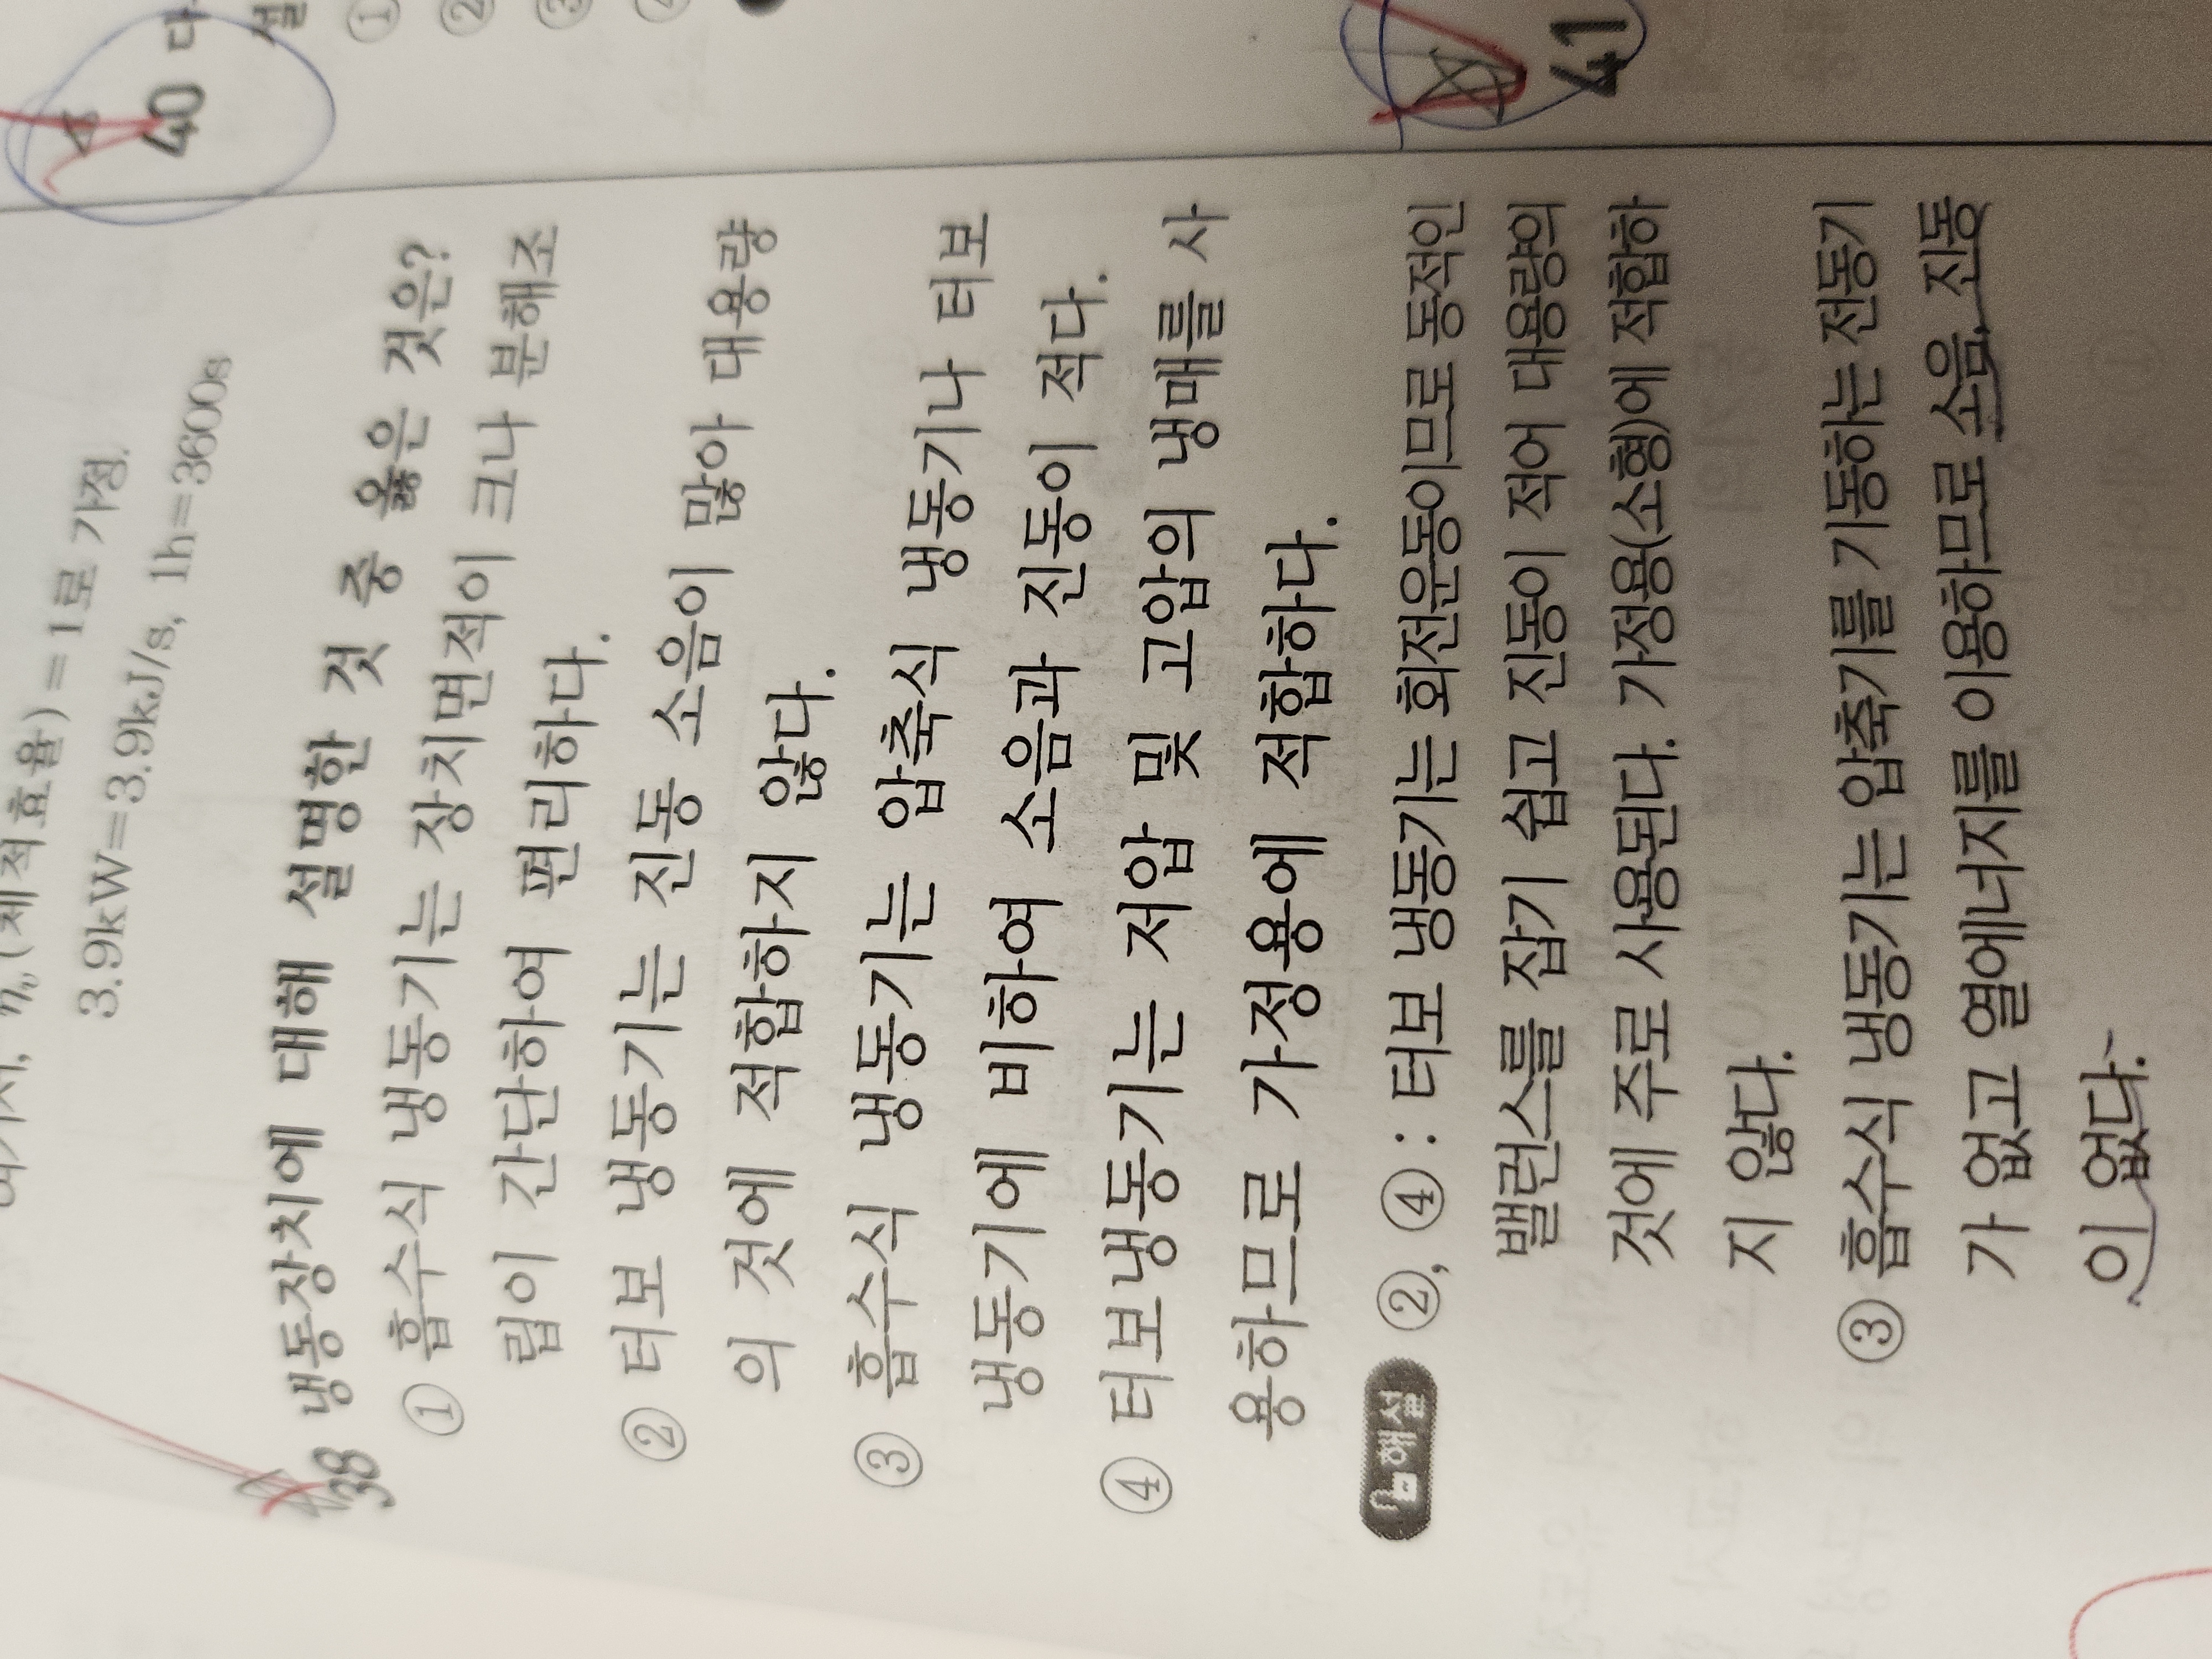 (체적효율)=1로 가정.
3.9kW=3.9kJ/s, 1h=3600s
38 냉동장치에 대해 설명한 것 중 옳은 것은?
① 흡수식 냉동기는 장치면적이 크나 분해조
립이 간단하여 편리하다.
② 터보 냉동기는 진동 소음이 많아 대용량
의 것에 적합하지 않다.
③ 흡수식 냉동기는 압축식 냉동기나 터보
냉동기에 비하여 소음과 진동이 적다.
④ 터보냉동기는 저압 및 고압의 냉매를 사
용하므로 가정용에 적합하다.
해설 ②, ④ : 터보 냉동기는 회전운동이므로 동적인
밸런스를 잡기 쉽고 진동이 적어 대용량의
것에 주로 사용된다. 가정용(소형)에 적합하
지 않다.
③ 흡수식 냉동기는 압축기를 기동하는 전동기
가 없고 열에너지를 이용하므로 소음, 진동
이 없다.
40
①
②
③
41